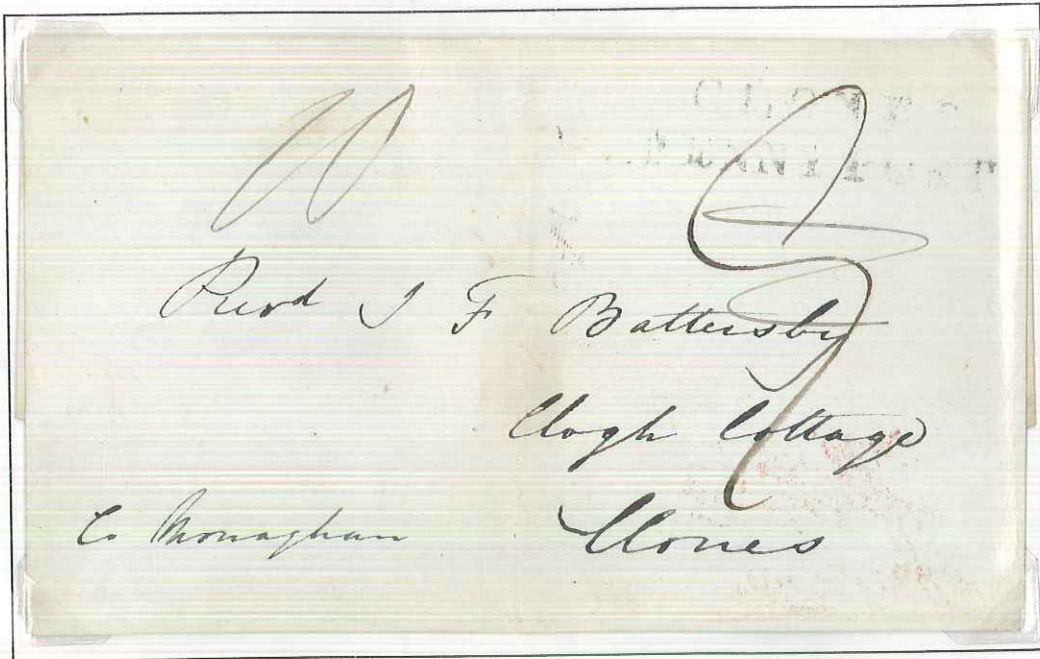 CLONES
PENNY POST
Revd J F Battersby
Clogh Cottage
Clones
Co Monaghan